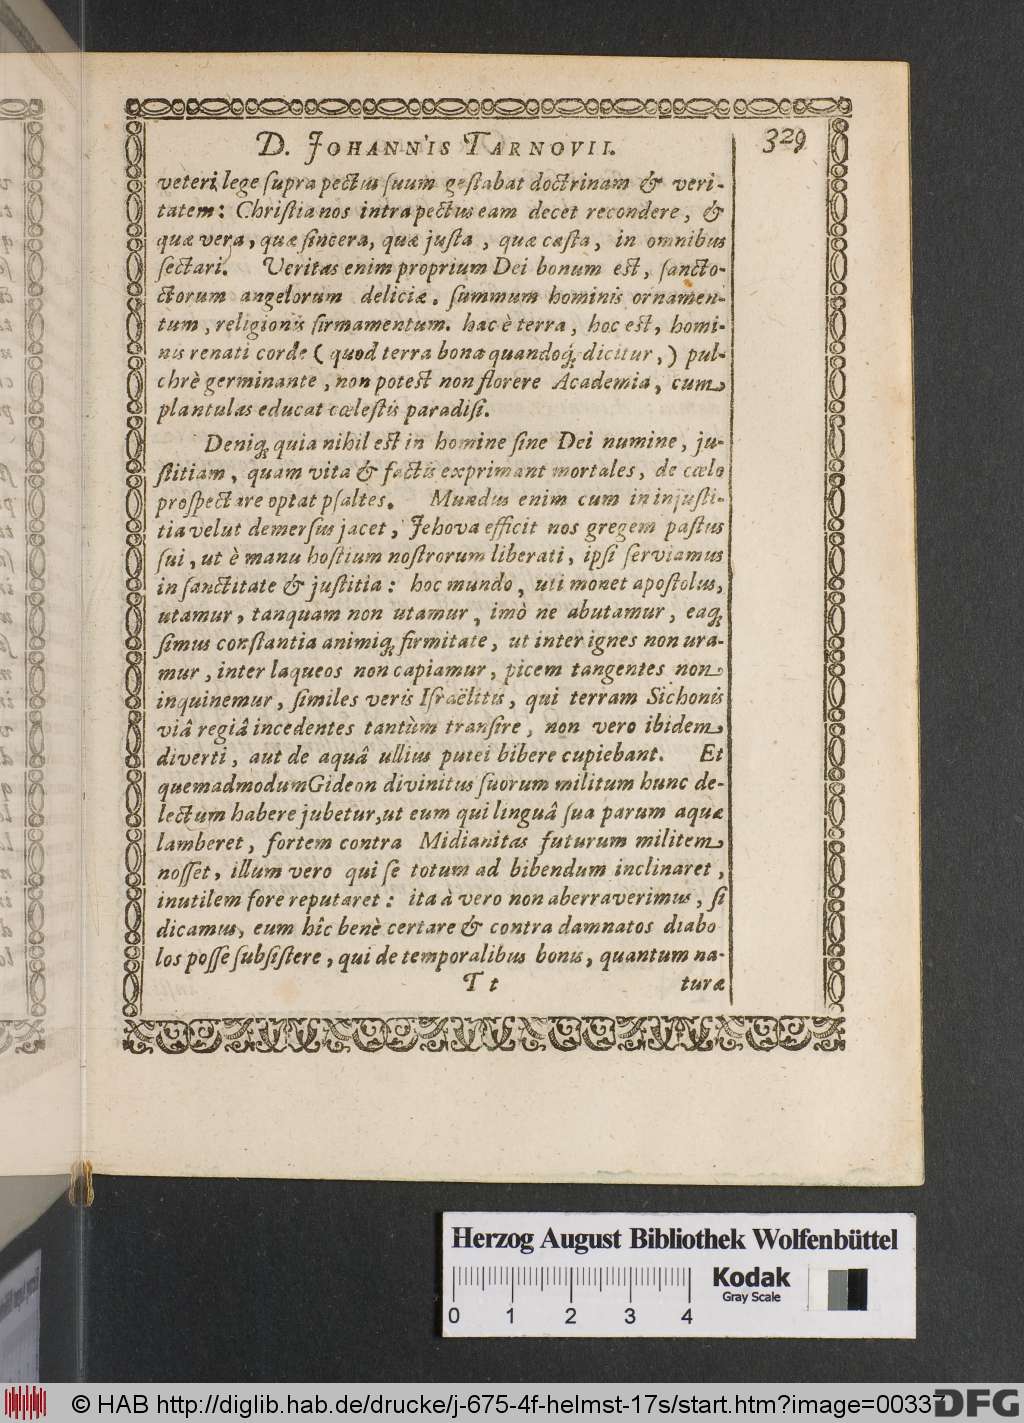 D. JOHANNIS TARNOVII.
329
veteri lege ſupra pectus ſuum geſtabat doctrinam & veri-
tatem: Chriſtianos intra pectus eam decet recondere, &
quæ vera, quæ ſincera, quæ juſta, quæ caſta, in omnibus
ſectari. Veritas enim proprium Dei bonum est, ſancto-
ctorum angelorum deliciæ. ſummum hominis ornamen-
tum, religionis firmamentum. hac è terra, hoc est, homi-
nis renati corde (quod terra bonæ quandoq́; dicitur,) pul-
chrè germinante, non potest non florere Academia, cum
plantulas educat cœleſtis paradiſi.
Deniq; quia nihil est in homine ſine Dei numine, ju-
ſtitiam, quam vita & factis exprimant mortales, de cœlo
proſpectare optat pſaltes. Mundus enim cum in injuſti-
tia velut demerſus jacet, Jehova efficit nos gregem paſtus
ſui, ut è manu hoſtium noſtrorum liberati, ipſi ſerviamus
in ſanctitate & juſtitia: hoc mundo, uti monet apoſtolus,
utamur, tanquam non utamur, imò ne abutamur, eaq;
ſimus conſtantia animiq; firmitate, ut inter ignes non ura-
mur, inter laqueos non capiamur, picem tangentes non
inquinemur, ſimiles veris Iſraëlitis, qui terram Sichonis
viâ regiâ incedentes tantùm tranſire, non vero ibidem
diverti, aut de aquâ ullius putei bibere cupiebant. Et
quemadmodum Gideon divinitus ſuorum militum hunc de-
lectum habere jubetur, ut eum qui linguâ ſua parum aquæ
lamberet, fortem contra Midianitas futurum militem
noſſet, illum vero qui ſe totum ad bibendum inclinaret,
inutilem fore reputaret: ita à vero non aberraverimus, ſi
dicamus, eum hîc benè certare & contra damnatos diabo
los poſſe ſubſiſtere, qui de temporalibus bonis, quantum na-
T t
turæ
Herzog August Bibliothek Wolfenbüttel
Kodak
Gray Scale
0 1 2 3 4
© HAB http://diglib.hab.de/drucke/j-675-4f-helmst-17s/start.htm?image=00337
DFG